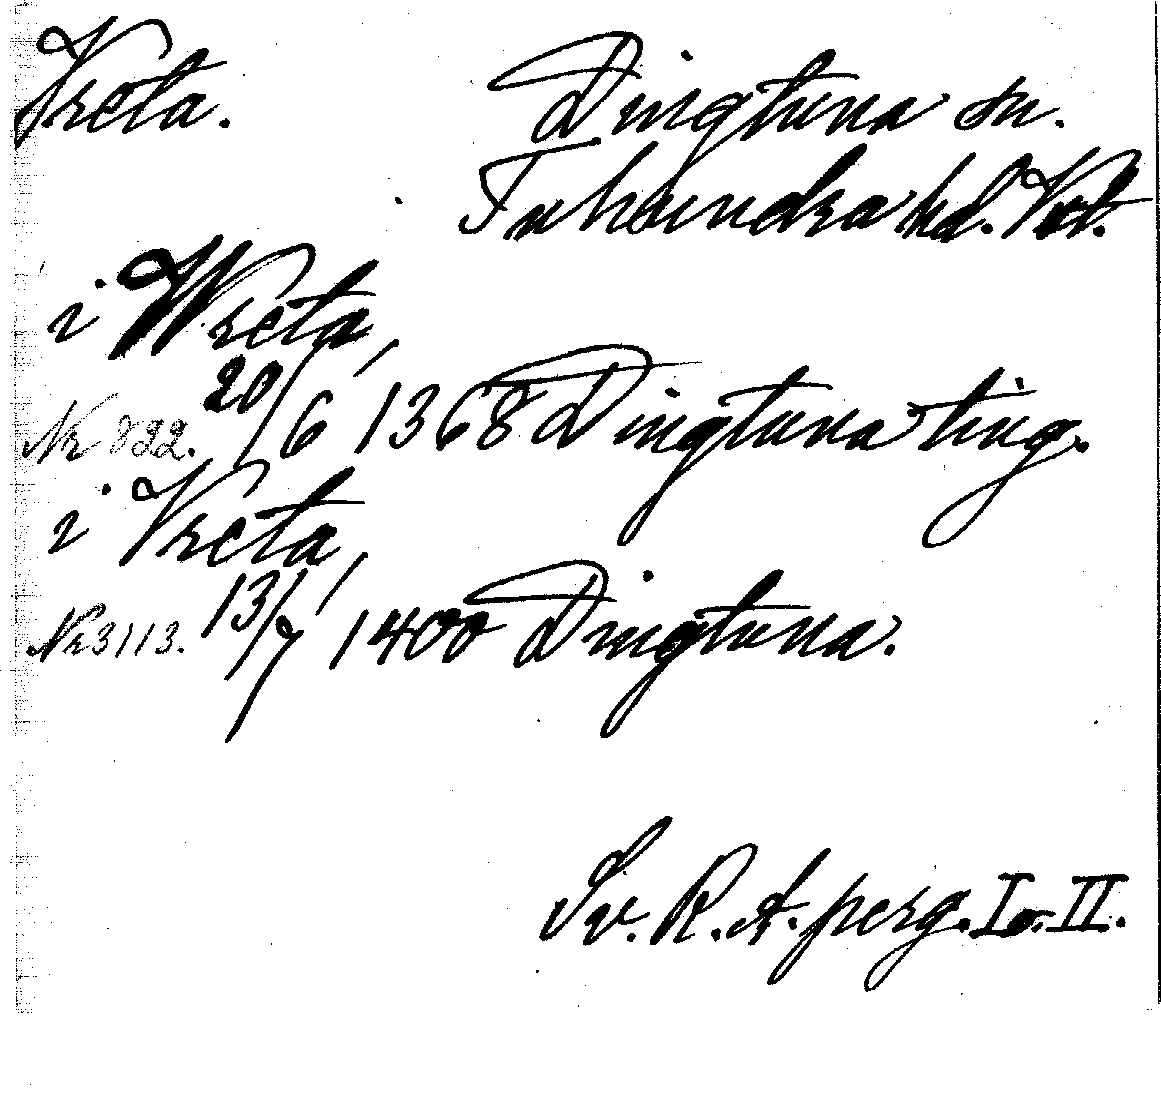 Vreta. Dingtuna sn.
Tuhundra hd. Vstl.
i Wreta,
Nr 822. 20/6 1368 Dingtuna ting.
i Vreta,
Nr 3113. 13/7 1400 Dingtuna.
Sv. R. A. perg. I o. II.